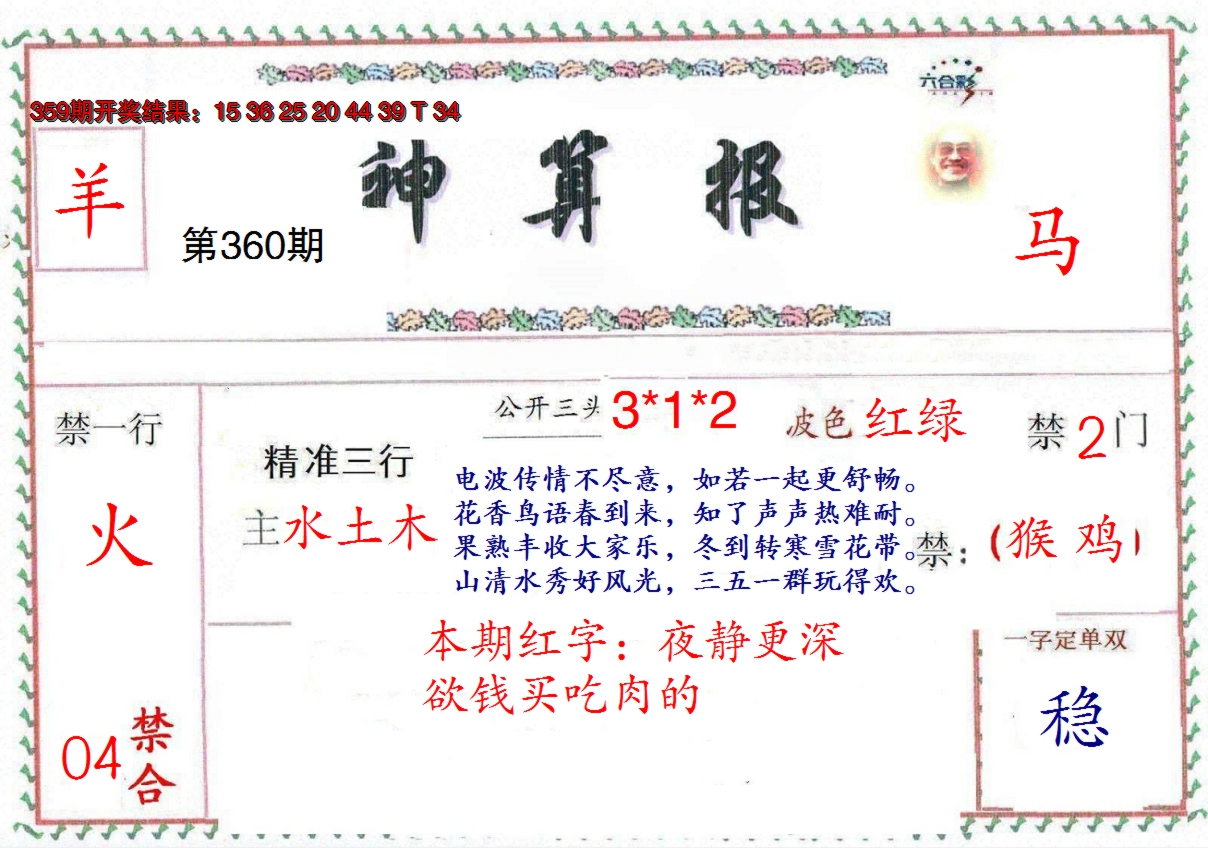 六合彩
359期开奖结果：15 36 25 20 44 39 T 34
羊
神算报
第360期
马
禁一行
火
04禁合
精准三行
主水土木
公开三头 3*1*2
波色 红绿
禁2门
电波传情不尽意，如若一起更舒畅。
花香鸟语春到来，知了声声热难耐。
果熟丰收大家乐，冬到转寒雪花带。
山清水秀好风光，三五一群玩得欢。
禁：(猴 鸡)
本期红字：夜静更深
欲钱买吃肉的
一字定单双
稳